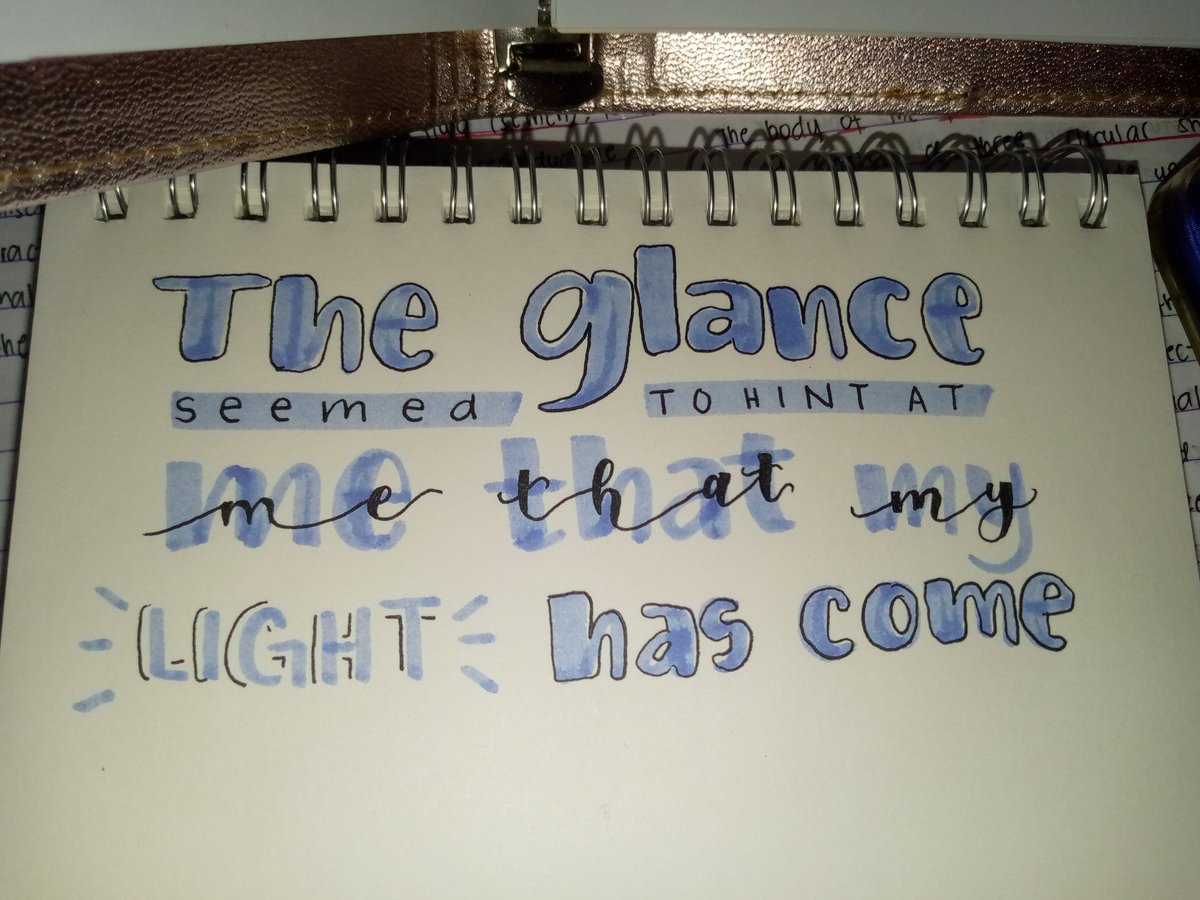 The body of the
three
The glance
seemed TO HINT AT
me that my
LIGHT has come